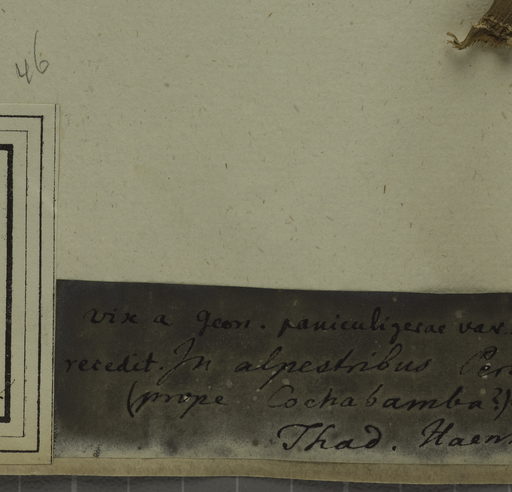 46
vix a Geon. paniculigerae var.
recedit. In alpestribus Per
(prope Cochabamba?)
Thad. Haen